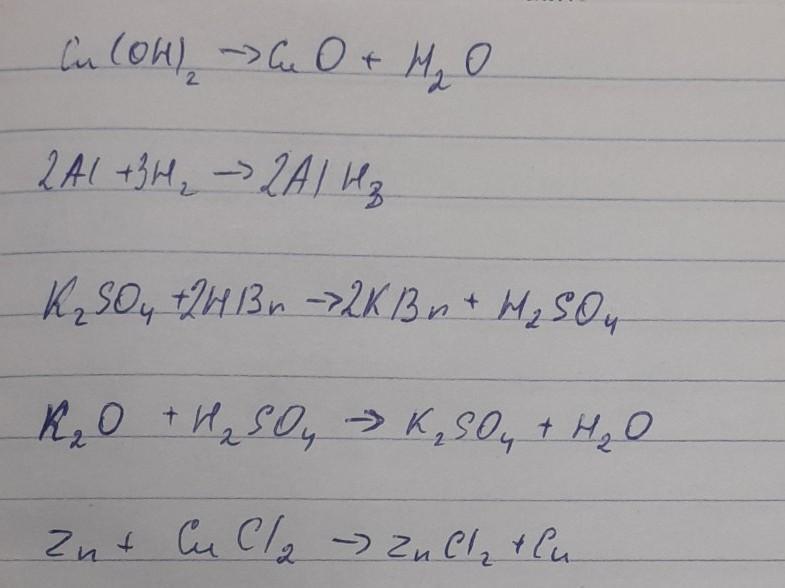 Cu(OH)₂ → CuO + H₂O
2Al + 3H₂ → 2AlH₃
K₂SO₄ + 2HBr → 2KBr + H₂SO₄
K₂O + H₂SO₄ → K₂SO₄ + H₂O
Zn + CuCl₂ → ZnCl₂ + Cu